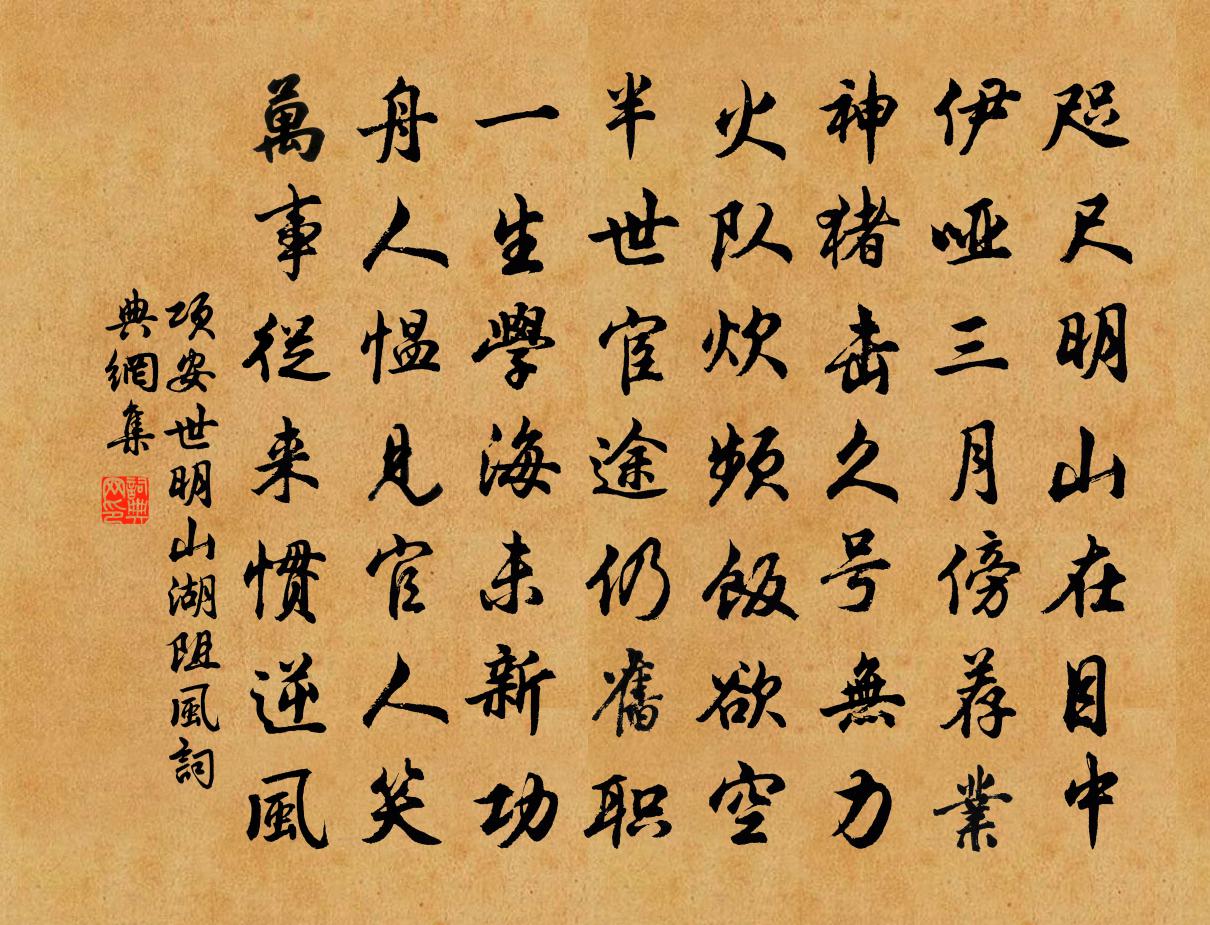 咫尺明山在目中
伊哑三月傍荐業
神猪击久号無力
火队炊频飯欲空
半世宦途仍舊职
一生學海未新功
舟人愠见官人笑
萬事從来慣逆風
项安世明山湖阻風詞
典網集
詞典
网印